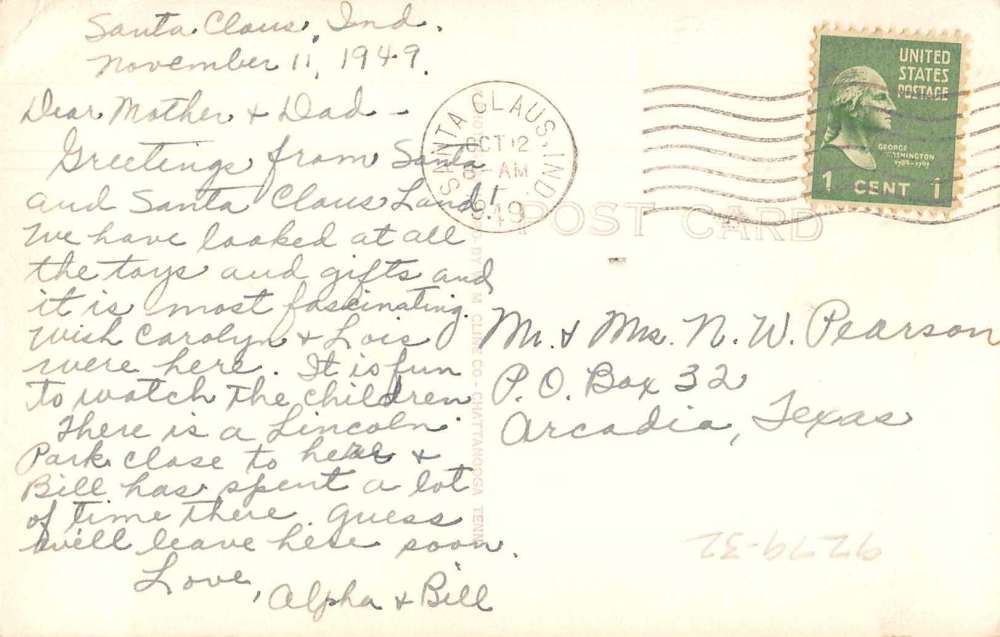 Santa Claus, Ind.
November 11, 1949.
Dear Mother & Dad –
Greetings from Santa
and Santa Claus Land!
We have looked at all
the toys and gifts and
it is most fascinating.
Wish Carolyn & Lois
were here. It is fun
to watch the children
There is a Lincoln
Park close to here &
Bill has spent a lot
of time there. Guess
will leave here soon.
Love,
Alpha & Bill
SANTA CLAUS, IND.
OCT 12
AM
1949
UNITED
STATES
POSTAGE
GEORGE
WASHINGTON
1789-1797
1 CENT 1
POST CARD
Mr. & Mrs. N. W. Pearson
P.O. Box 32
Arcadia, Texas
CLINE CO - CHATTANOOGA TENN
9279-32